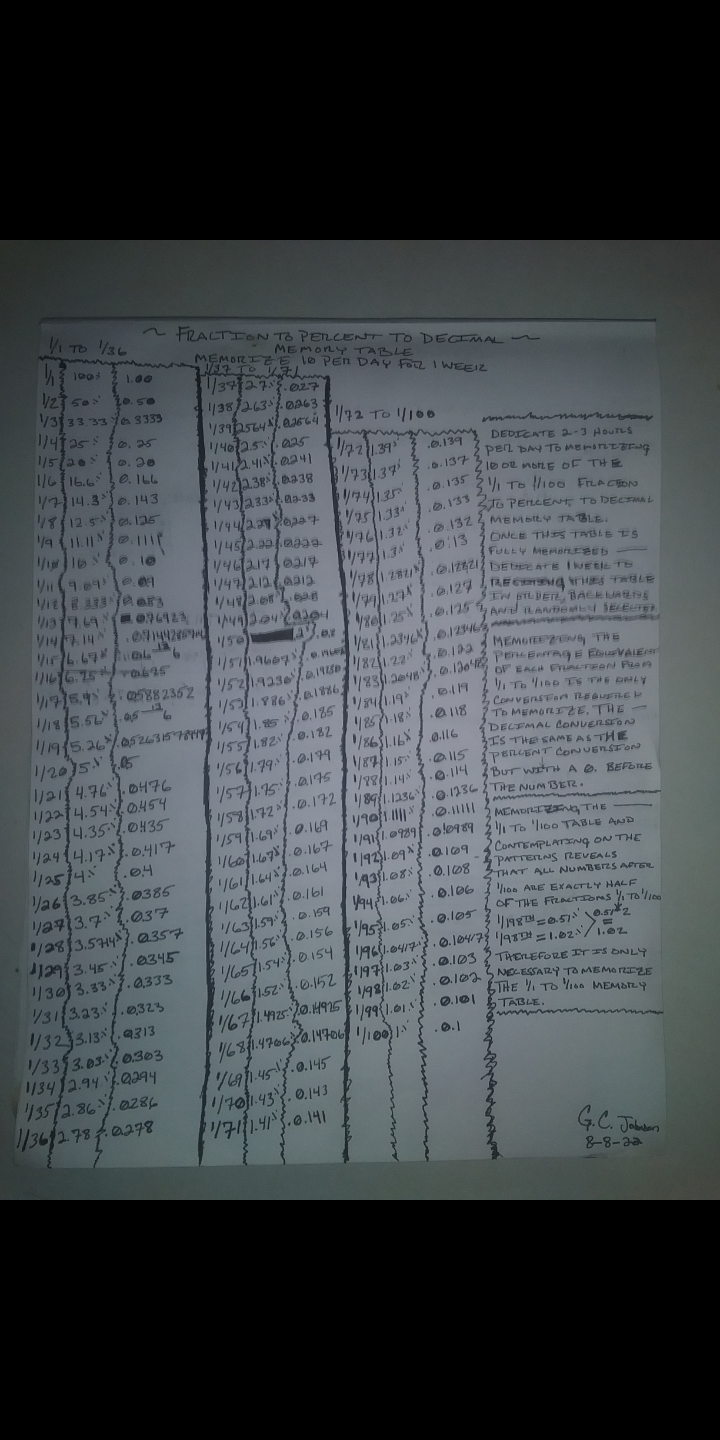 ~ FRACTION TO PERCENT TO DECIMAL ~
MEMORY TABLE
MEMORIZE 10 PER DAY FOR 1 WEEK
1/1 TO 1/36
1/1 100% 1.00
1/2 50% 0.50
1/3 33.33% 0.3333
1/4 25% 0.25
1/5 20% 0.20
1/6 16.6% 0.166
1/7 14.3% 0.143
1/8 12.5% 0.125
1/9 11.11% 0.1111
1/10 10% 0.10
1/11 9.09% 0.09
1/12 8.333% 0.083
1/13 7.69% 0.76923
1/14 7.14%
1/15 6.67%
1/16 6.25% 0.625
1/17 5.9% .05882352
1/18 5.56%
1/19 5.26%
1/20 5% .05
1/21 4.76% .0476
1/22 4.54% .0454
1/23 4.35% .0435
1/24 4.17% .0417
1/25 4% .04
1/26 3.85% .0385
1/27 3.7% .037
1/28 3.5714% .0357
1/29 3.45% .0345
1/30 3.33% .0333
1/31 3.23% .0323
1/32 3.13% .0313
1/33 3.03% .0303
1/34 2.94% .0294
1/35 2.86% .0286
1/36 2.78% .0278
1/37 TO 1/71
1/37 2.7% .027
1/38 2.63% .0263
1/39 2.564% .02564
1/40 2.5% .025
1/41 2.41% .0241
1/42 2.38% .0238
1/43 2.33% .0233
1/44 2.27% .0227
1/45 2.22% .0222
1/46 2.17% .0217
1/47 2.12% .0212
1/48 2.08% .028
1/49 2.04% .0204
1/50 2%
1/51 1.9607%
1/52 1.9230%
1/53 1.886% .1886
1/54 1.85% .0.185
1/55 1.82% .0.182
1/56 1.79% .0.179
1/57 1.75% .0.175
1/58 1.72% .0.172
1/59 1.69% .0.169
1/60 1.67% .0.167
1/61 1.64% .0.164
1/62 1.61% .0.161
1/63 1.59% .0.159
1/64 1.56% .0.156
1/65 1.54% .0.154
1/66 1.52% .0.152
1/67 1.4925% .0.14925
1/68 1.4706% .0.14706
1/69 1.45% .0.145
1/70 1.43% .0.143
1/71 1.41% .0.141
1/72 TO 1/100
1/72 1.39% .0.139
1/73 1.37% .0.137
1/74 1.35% .0.135
1/75 1.33% .0.133
1/76 1.32% .0.132
1/77 1.3% .0.13
1/78 1.2821% .0.12821
1/79 1.27% .0.127
1/80 1.25% .0.125
1/81 1.2346% .0.12346
1/82 1.22% .0.122
1/83 1.2048% .0.12048
1/84 1.19% .0.119
1/85 1.18% .0.118
1/86 1.16% 0.116
1/87 1.15% .0.115
1/88 1.14% .0.114
1/89 1.1236% .0.1236
1/90 1.1111% .0.11111
1/91 1.0989% .0.10989
1/92 1.09% .0.109
1/93 1.08% .0.108
1/94 1.06% .0.106
1/95 1.05% .0.105
1/96 1.0417% .0.10417
1/97 1.03% .0.103
1/98 1.02% .0.102
1/99 1.01% .0.101
1/100 1% .0.1
DEDICATE 2-3 HOURS
PER DAY TO MEMORIZING
10 OR MORE OF THE
1/1 TO 1/100 FRACTION
TO PERCENT, TO DECIMAL
MEMORY TABLE.
ONCE THIS TABLE IS
FULLY MEMORIZED —
DEDICATE 1 WEEK TO
RECITING THIS TABLE
IN ORDER, BACKWARDS
AND RANDOMLY SELECTED
MEMORIZING THE
PERCENTAGE EQUIVALENT
OF EACH FRACTION FROM
1/1 TO 1/100 IS THE ONLY
CONVERSION REQUIRED
TO MEMORIZE. THE —
DECIMAL CONVERSION
IS THE SAME AS THE
PERCENT CONVERSION
BUT WITH A 0. BEFORE
THE NUMBER.
MEMORIZING THE —
1/1 TO 1/100 TABLE AND
CONTEMPLATING ON THE
PATTERNS REVEALS
THAT ALL NUMBERS AFTER
1/100 ARE EXACTLY HALF
OF THE FRACTIONS 1/1 TO 1/100
1/198TH = 0.51% > 0.51*2
1/98TH = 1.02% 1.02
THEREFORE IT IS ONLY
NECESSARY TO MEMORIZE
THE 1/1 TO 1/100 MEMORY
TABLE.
G.C. Johnson
8-8-22